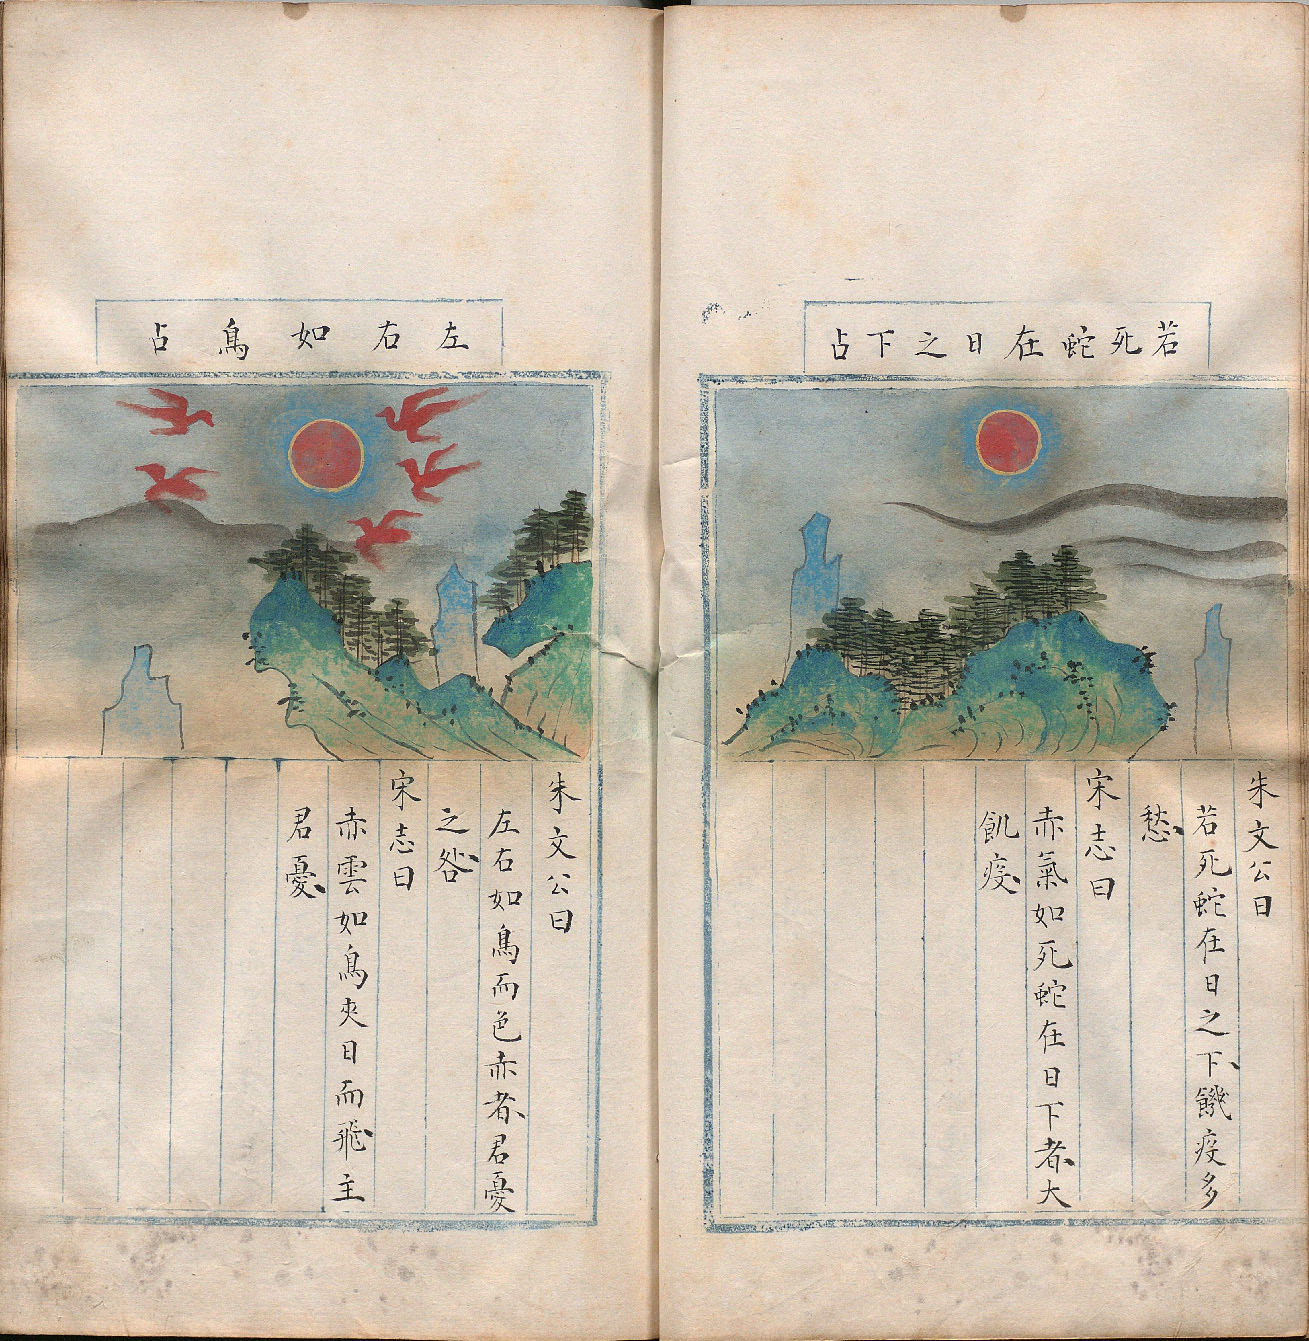 若死蛇在日之下占
朱文公曰
若死蛇在日之下饑疫多
愁
宋志曰
赤氣如死蛇在日下者大
飢疫
左右如鳥占
朱文公曰
左右如鳥而色赤者君憂
之咎
宋志曰
赤雲如鳥夾日而飛主
君憂